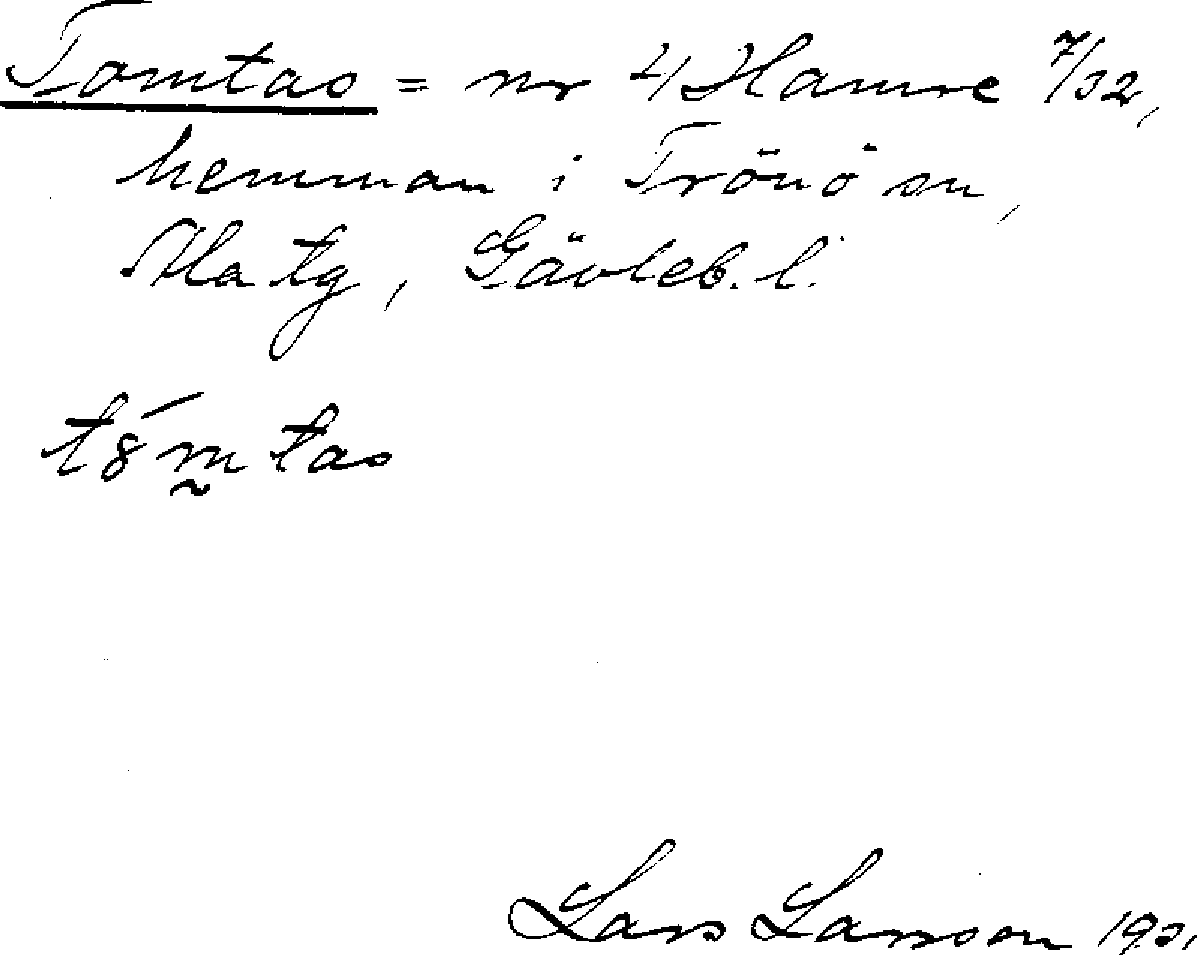 Tomtas = nr 4 Hamre 7/32,
hemman i Trönö sn,
Ala tg, Gävleb. l.
tȣ́m̰tas
Lars Larsson